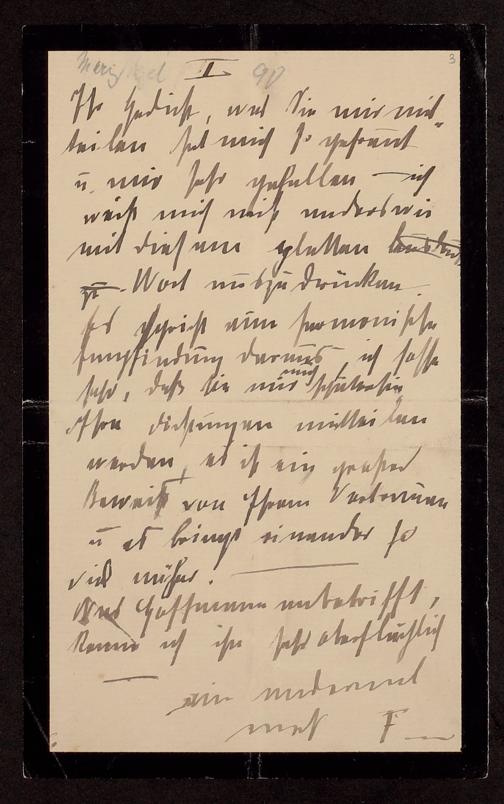 I 98 3
Ihr Gedicht, was Sie mir mit-
teilen hat mich so gefreut
u. mir sehr gefallen – ich
weiß mich nicht anders wie
mit diesem glatten
zu Wort auszudrücken
Es spricht eine harmonische
Empfindung daraus, ich hoffe
sehr, daß Sie mir auch späterhin
Ihre Dichtungen mitteilen
werden, es ist ein großer
Beweis von Ihrem Vertrauen
u es bringt einander so
viel näher. —
Was Hoffmann anbetrifft,
kenne ich ihn sehr oberflächlich
— ein andermal
mehr F